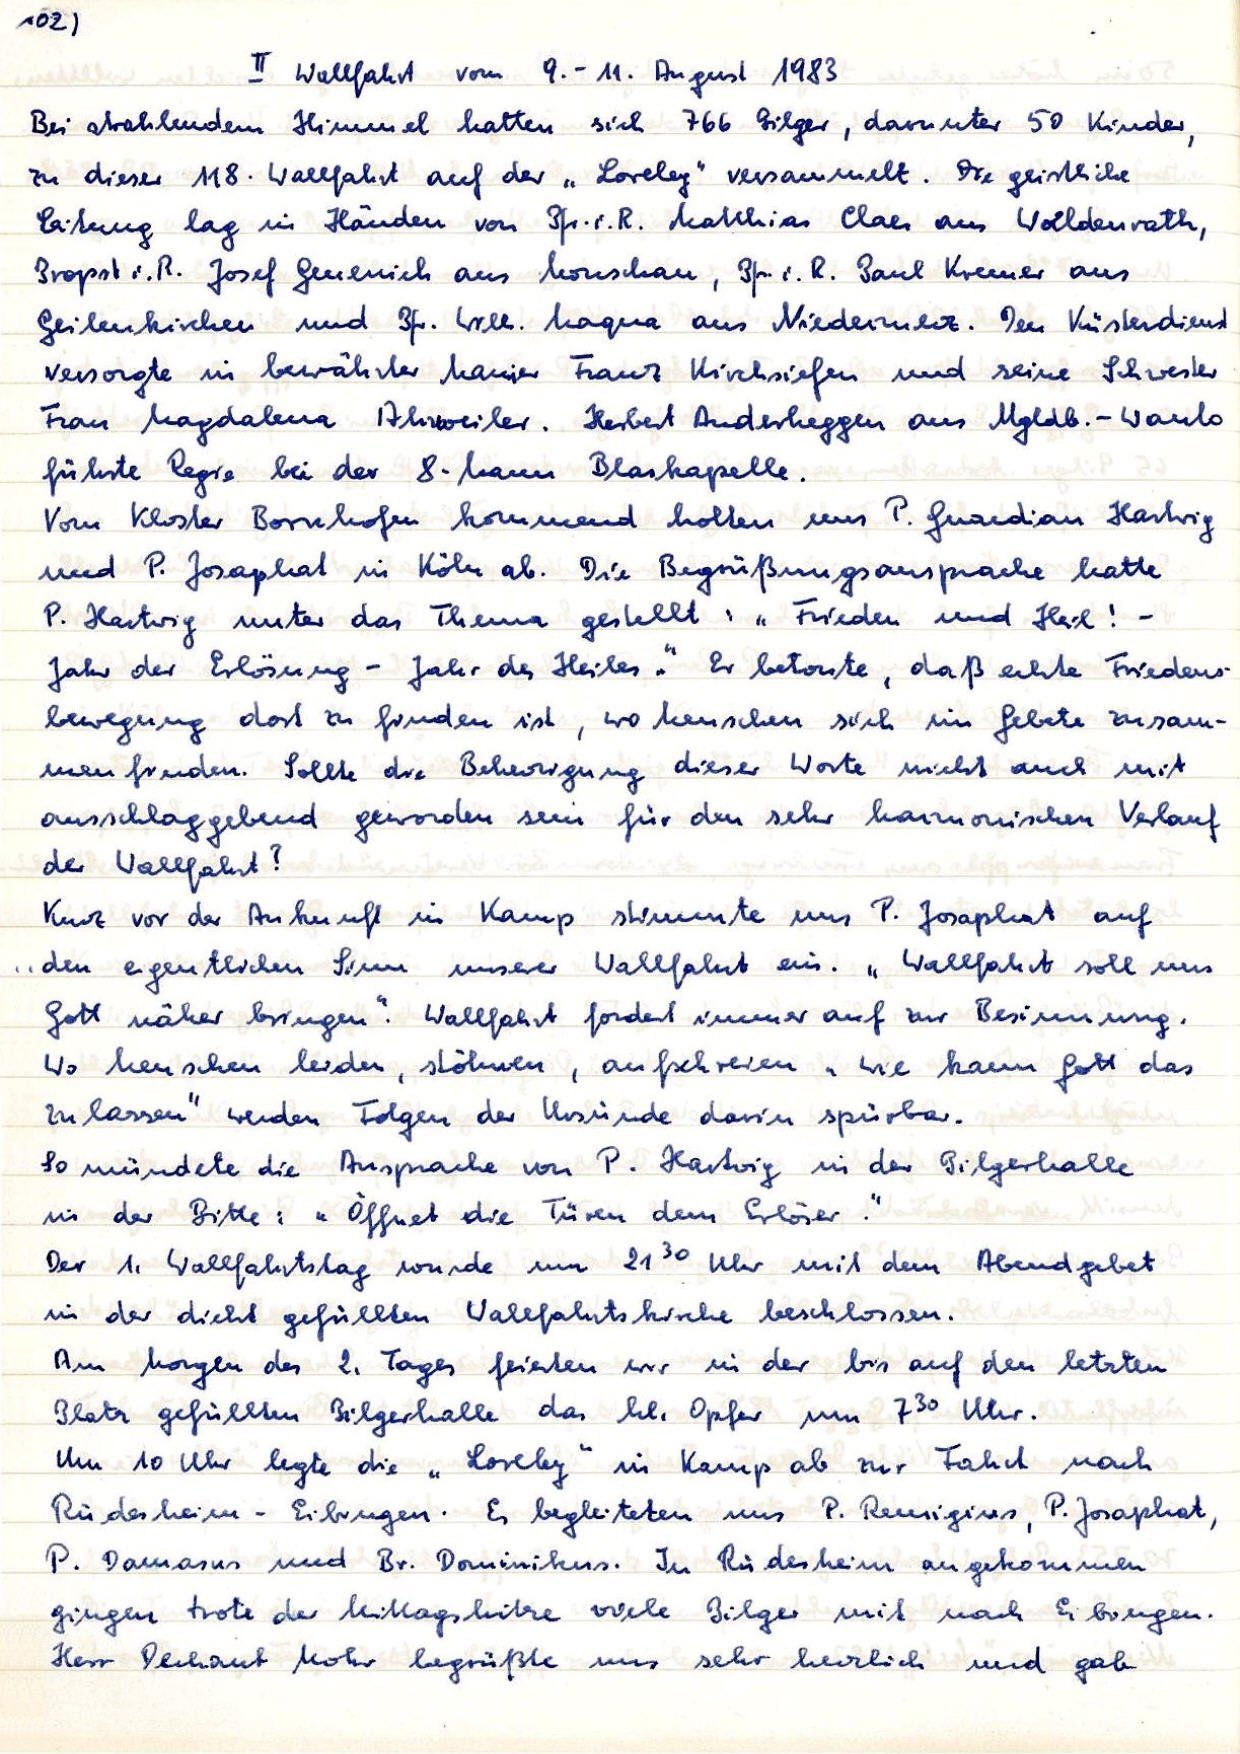 102)
II Wallfahrt vom 9.-11. August 1983
Bei strahlendem Himmel hatten sich 766 Pilger, darunter 50 Kinder,
zu dieser 118. Wallfahrt auf der „Loreley" versammelt. Die geistliche
Leitung lag in Händen von Pfr. i. R. Matthias Claes aus Waldenrath,
Propst i. R. Josef Genenich aus Monschau, Pfr. i. R. Paul Kremer aus
Geilenkirchen und Pfr. Wilh. Maqua aus Niedermerz. Den Küsterdienst
versorgte in bewährter Manier Franz Kirchsiefen und seine Schwester
Frau Magdalena Ahrweiler. Herbert Anderheggen aus Mgldb.-Wanlo
führte Regie bei der 8-Mann Blaskapelle.
Vom Kloster Bornhofen kommend holten uns P. Guardian Hartwig
und P. Josaphat in Köln ab. Die Begrüßungsansprache hatte
P. Hartwig unter das Thema gestellt: „Frieden und Heil! -
Jahr der Erlösung - Jahr des Heiles." Er betonte, daß echte Friedens-
bewegung dort zu finden ist, wo Menschen sich im Gebete zusam-
menfinden. Sollte die Beherzigung dieser Worte nicht auch mit
ausschlaggebend geworden sein für den sehr harmonischen Verlauf
der Wallfahrt?
Kurz vor der Ankunft in Kamp stimmte uns P. Josaphat auf
den eigentlichen Sinn unserer Wallfahrt ein. „Wallfahrt soll uns
Gott näher bringen". Wallfahrt fordert immer auf zur Besinnung.
Wo Menschen leiden, stöhnen, aufschreien „wie kann Gott das
zulassen" werden Folgen der Ursünde darin spürbar.
So mündete die Ansprache von P. Hartwig in der Pilgerhalle
in der Bitte: „Öffnet die Türen dem Erlöser."
Der 1. Wallfahrtstag wurde um 21³⁰ Uhr mit dem Abendgebet
in der dicht gefüllten Wallfahrtskirche beschlossen.
Am Morgen des 2. Tages feierten wir in der bis auf den letzten
Platz gefüllten Pilgerhalle das hl. Opfer um 7³⁰ Uhr.
Um 10 Uhr legte die „Loreley" in Kamp ab zur Fahrt nach
Rüdesheim - Eibingen. Es begleiteten uns P. Remigius, P. Josaphat,
P. Damasus und Br. Dominikus. In Rüdesheim angekommen
gingen trotz der Mittagshitze viele Pilger mit nach Eibingen.
Herr Dechant Mohr begrüßte uns sehr herzlich und gab